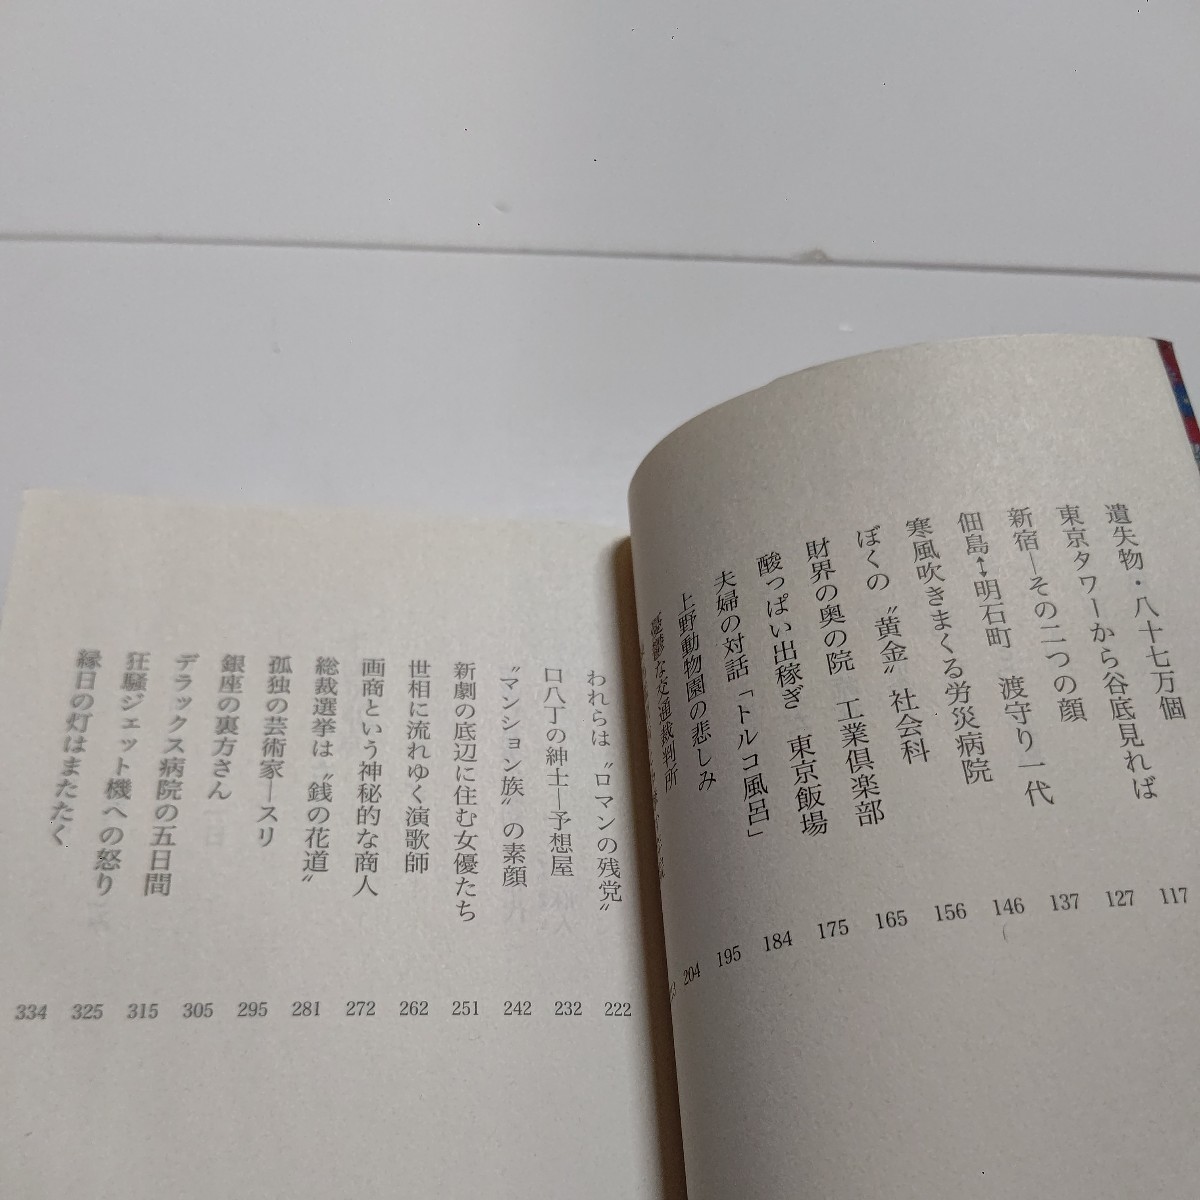 遺失物・八十七万個 117
東京タワーから谷底見れば 127
新宿―その二つの顔 137
佃島↔明石町 渡守り一代 146
寒風吹きまくる労災病院 156
ぼくの〝黄金〟社会科 165
財界の奥の院 工業倶楽部 175
酸っぱい出稼ぎ 東京飯場 184
夫婦の対話「トルコ風呂」 195
上野動物園の悲しみ 204
憂鬱な交通裁判所
われらは〝ロマンの残党〟 222
口八丁の紳士―予想屋 232
〝マンション族〟の素顔 242
新劇の底辺に住む女優たち 251
世相に流れゆく演歌師 262
画商という神秘的な商人 272
総裁選挙は〝銭の花道〟 281
孤独の芸術家―スリ 295
銀座の裏方さん 305
デラックス病院の五日間 315
狂騒ジェット機への怒り 325
縁日の灯はまたたく 334